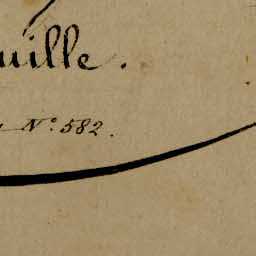 uille.
N.º 582.